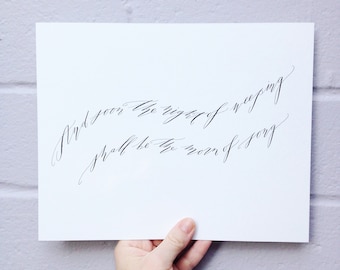 And soon the night of weeping
shall be the morn of song